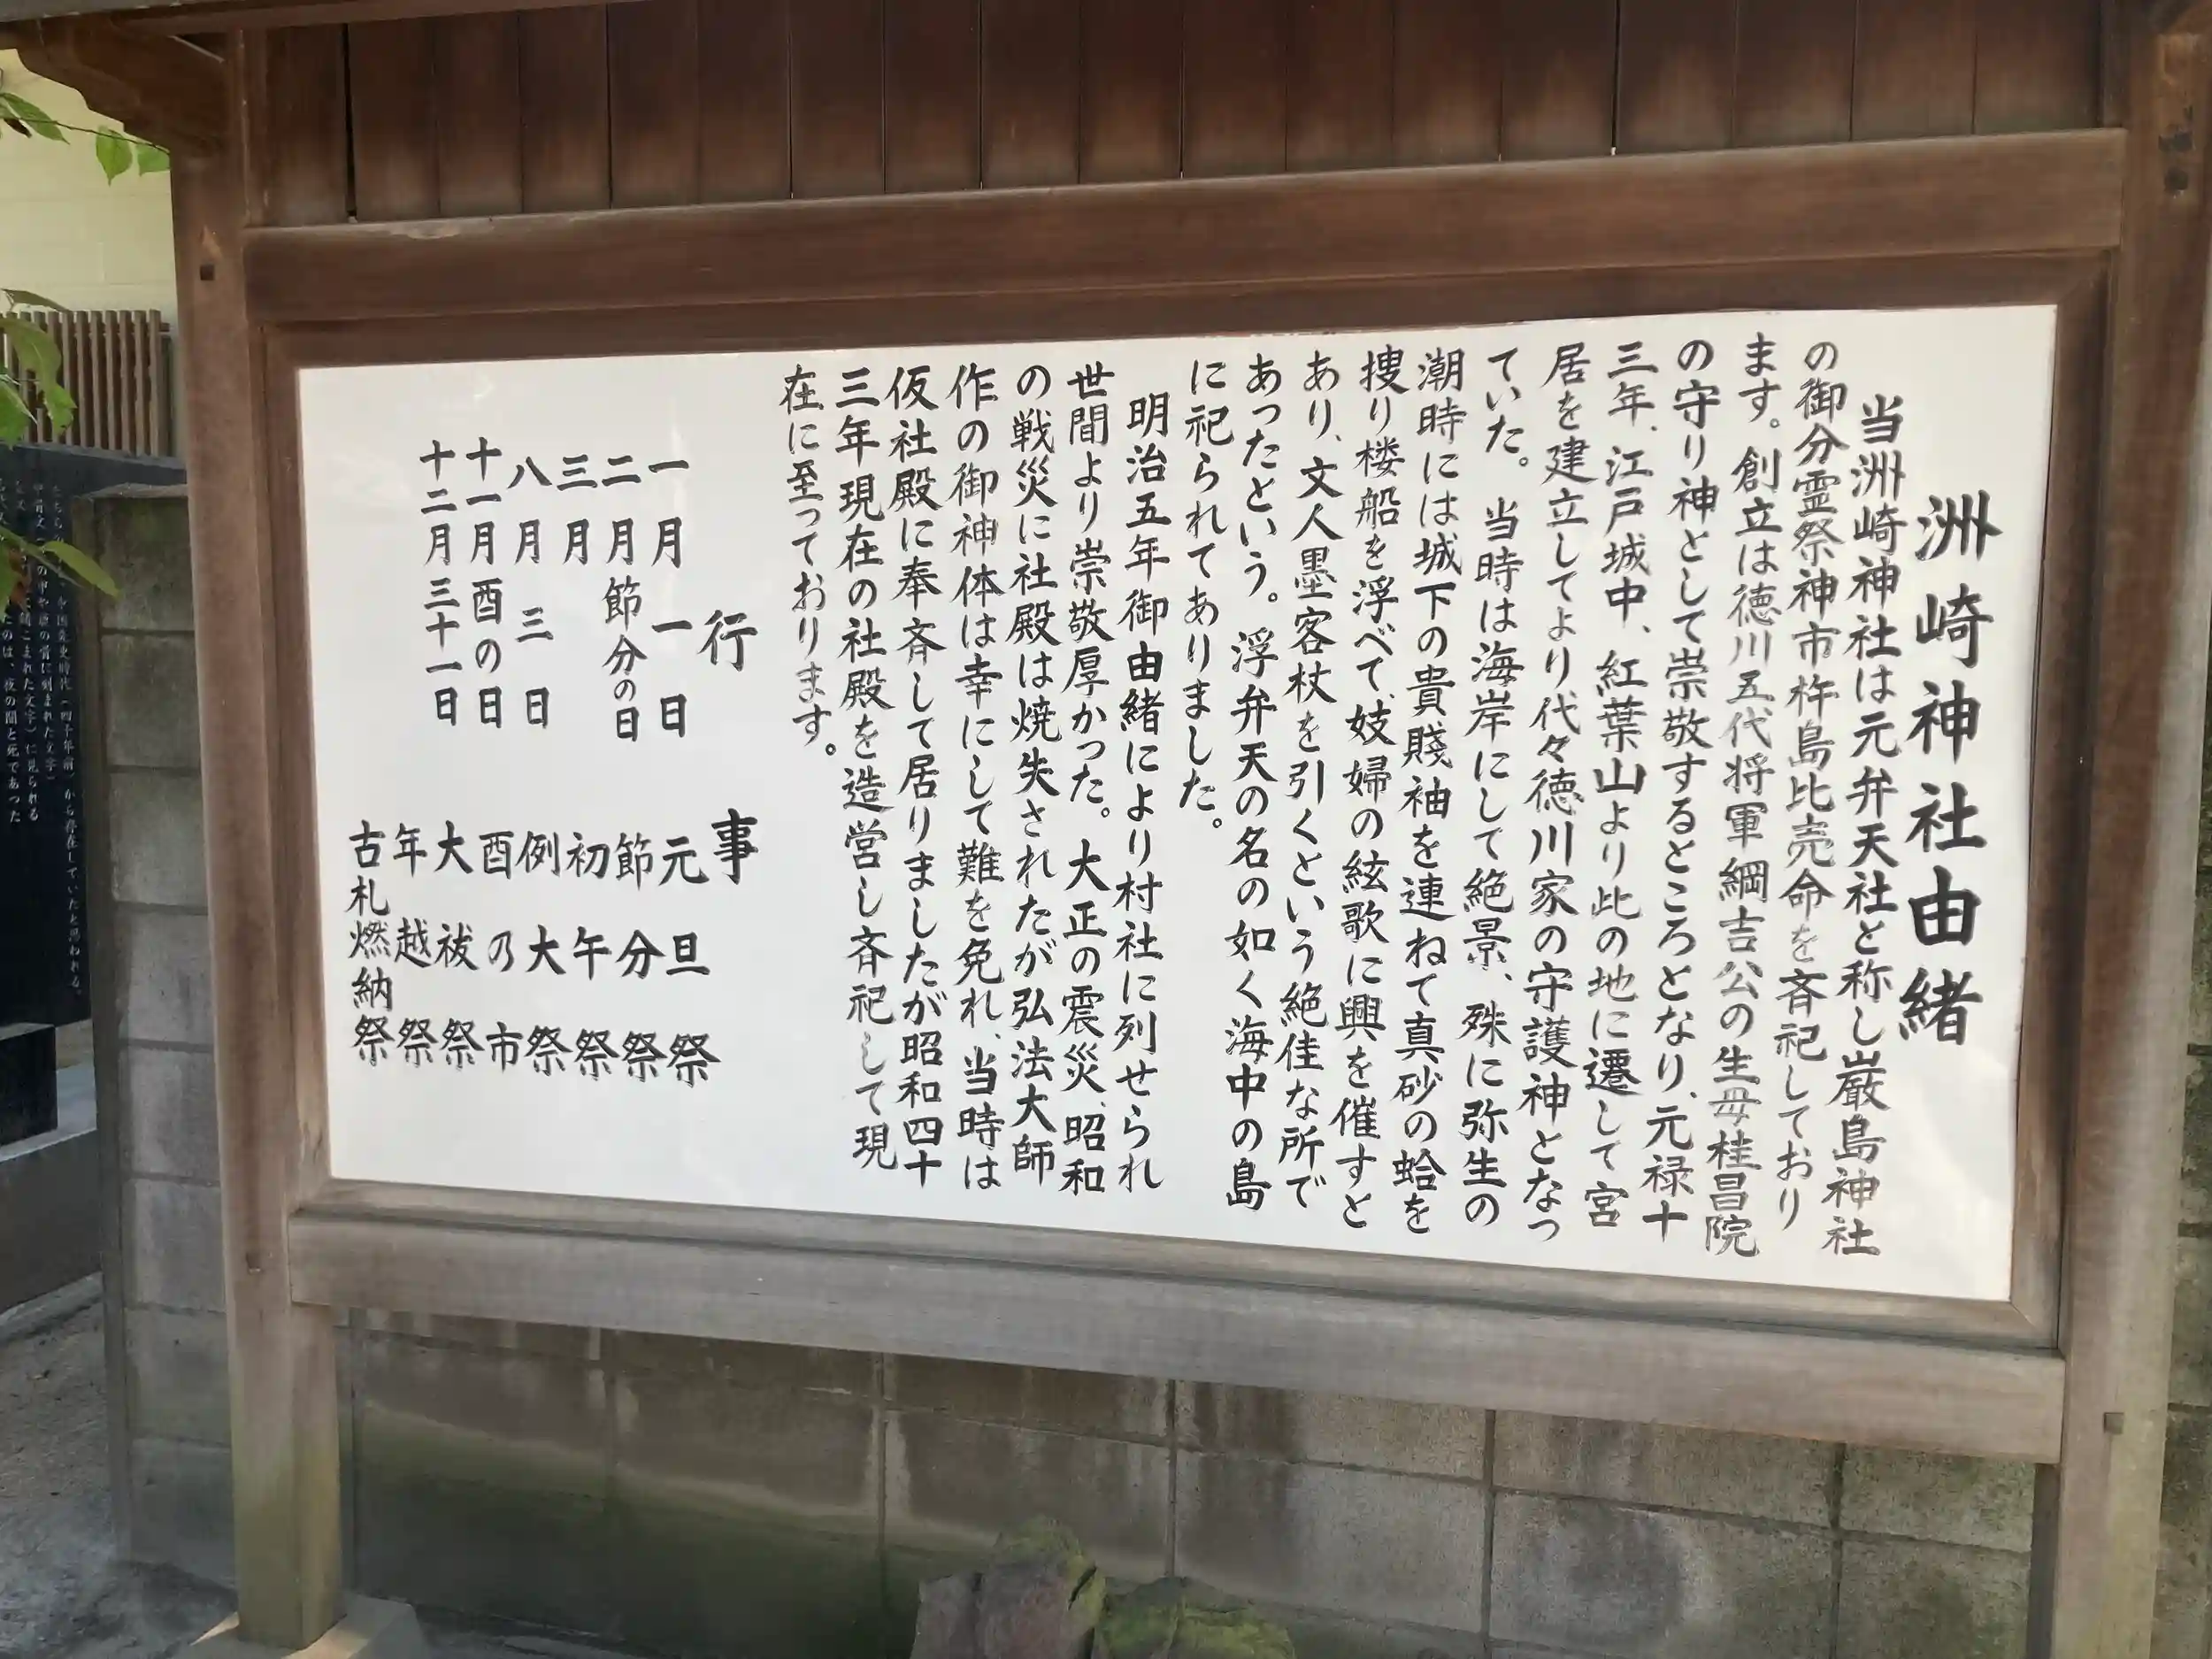 洲崎神社由緒
当洲崎神社は元弁天社と称し厳島神社
の御分霊祭神市杵島比売命を斉祀しており
ます。創立は徳川五代将軍綱吉公の生母桂昌院
の守り神として崇敬するところとなり、元禄十
三年、江戸城中、紅葉山より此の地に遷して宮
居を建立してより代々徳川家の守護神となっ
ていた。 当時は海岸にして絶景、殊に弥生の
潮時には城下の貴賤袖を連ねて真砂の蛤を
捜り楼船を浮べて、妓婦の絃歌に興を催すと
あり、文人墨客杖を引くという絶佳な所で
あったという。浮弁天の名の如く海中の島
に祀られてありました。
明治五年御由緒により村社に列せられ
世間より崇敬厚かった。大正の震災、昭和
の戦災に社殿は焼失されたが弘法大師
作の御神体は幸にして難を免れ、当時は
仮社殿に奉斉して居りましたが昭和四十
三年現在の社殿を造営し斉祀して現
在に至っております。
行事
一月一日 元旦祭
二月節分の日 節分祭
三月 初午祭
八月三日 例大祭
十一月酉の日 酉の市
十二月三十一日 大祓祭
年越祭
古札燃納祭